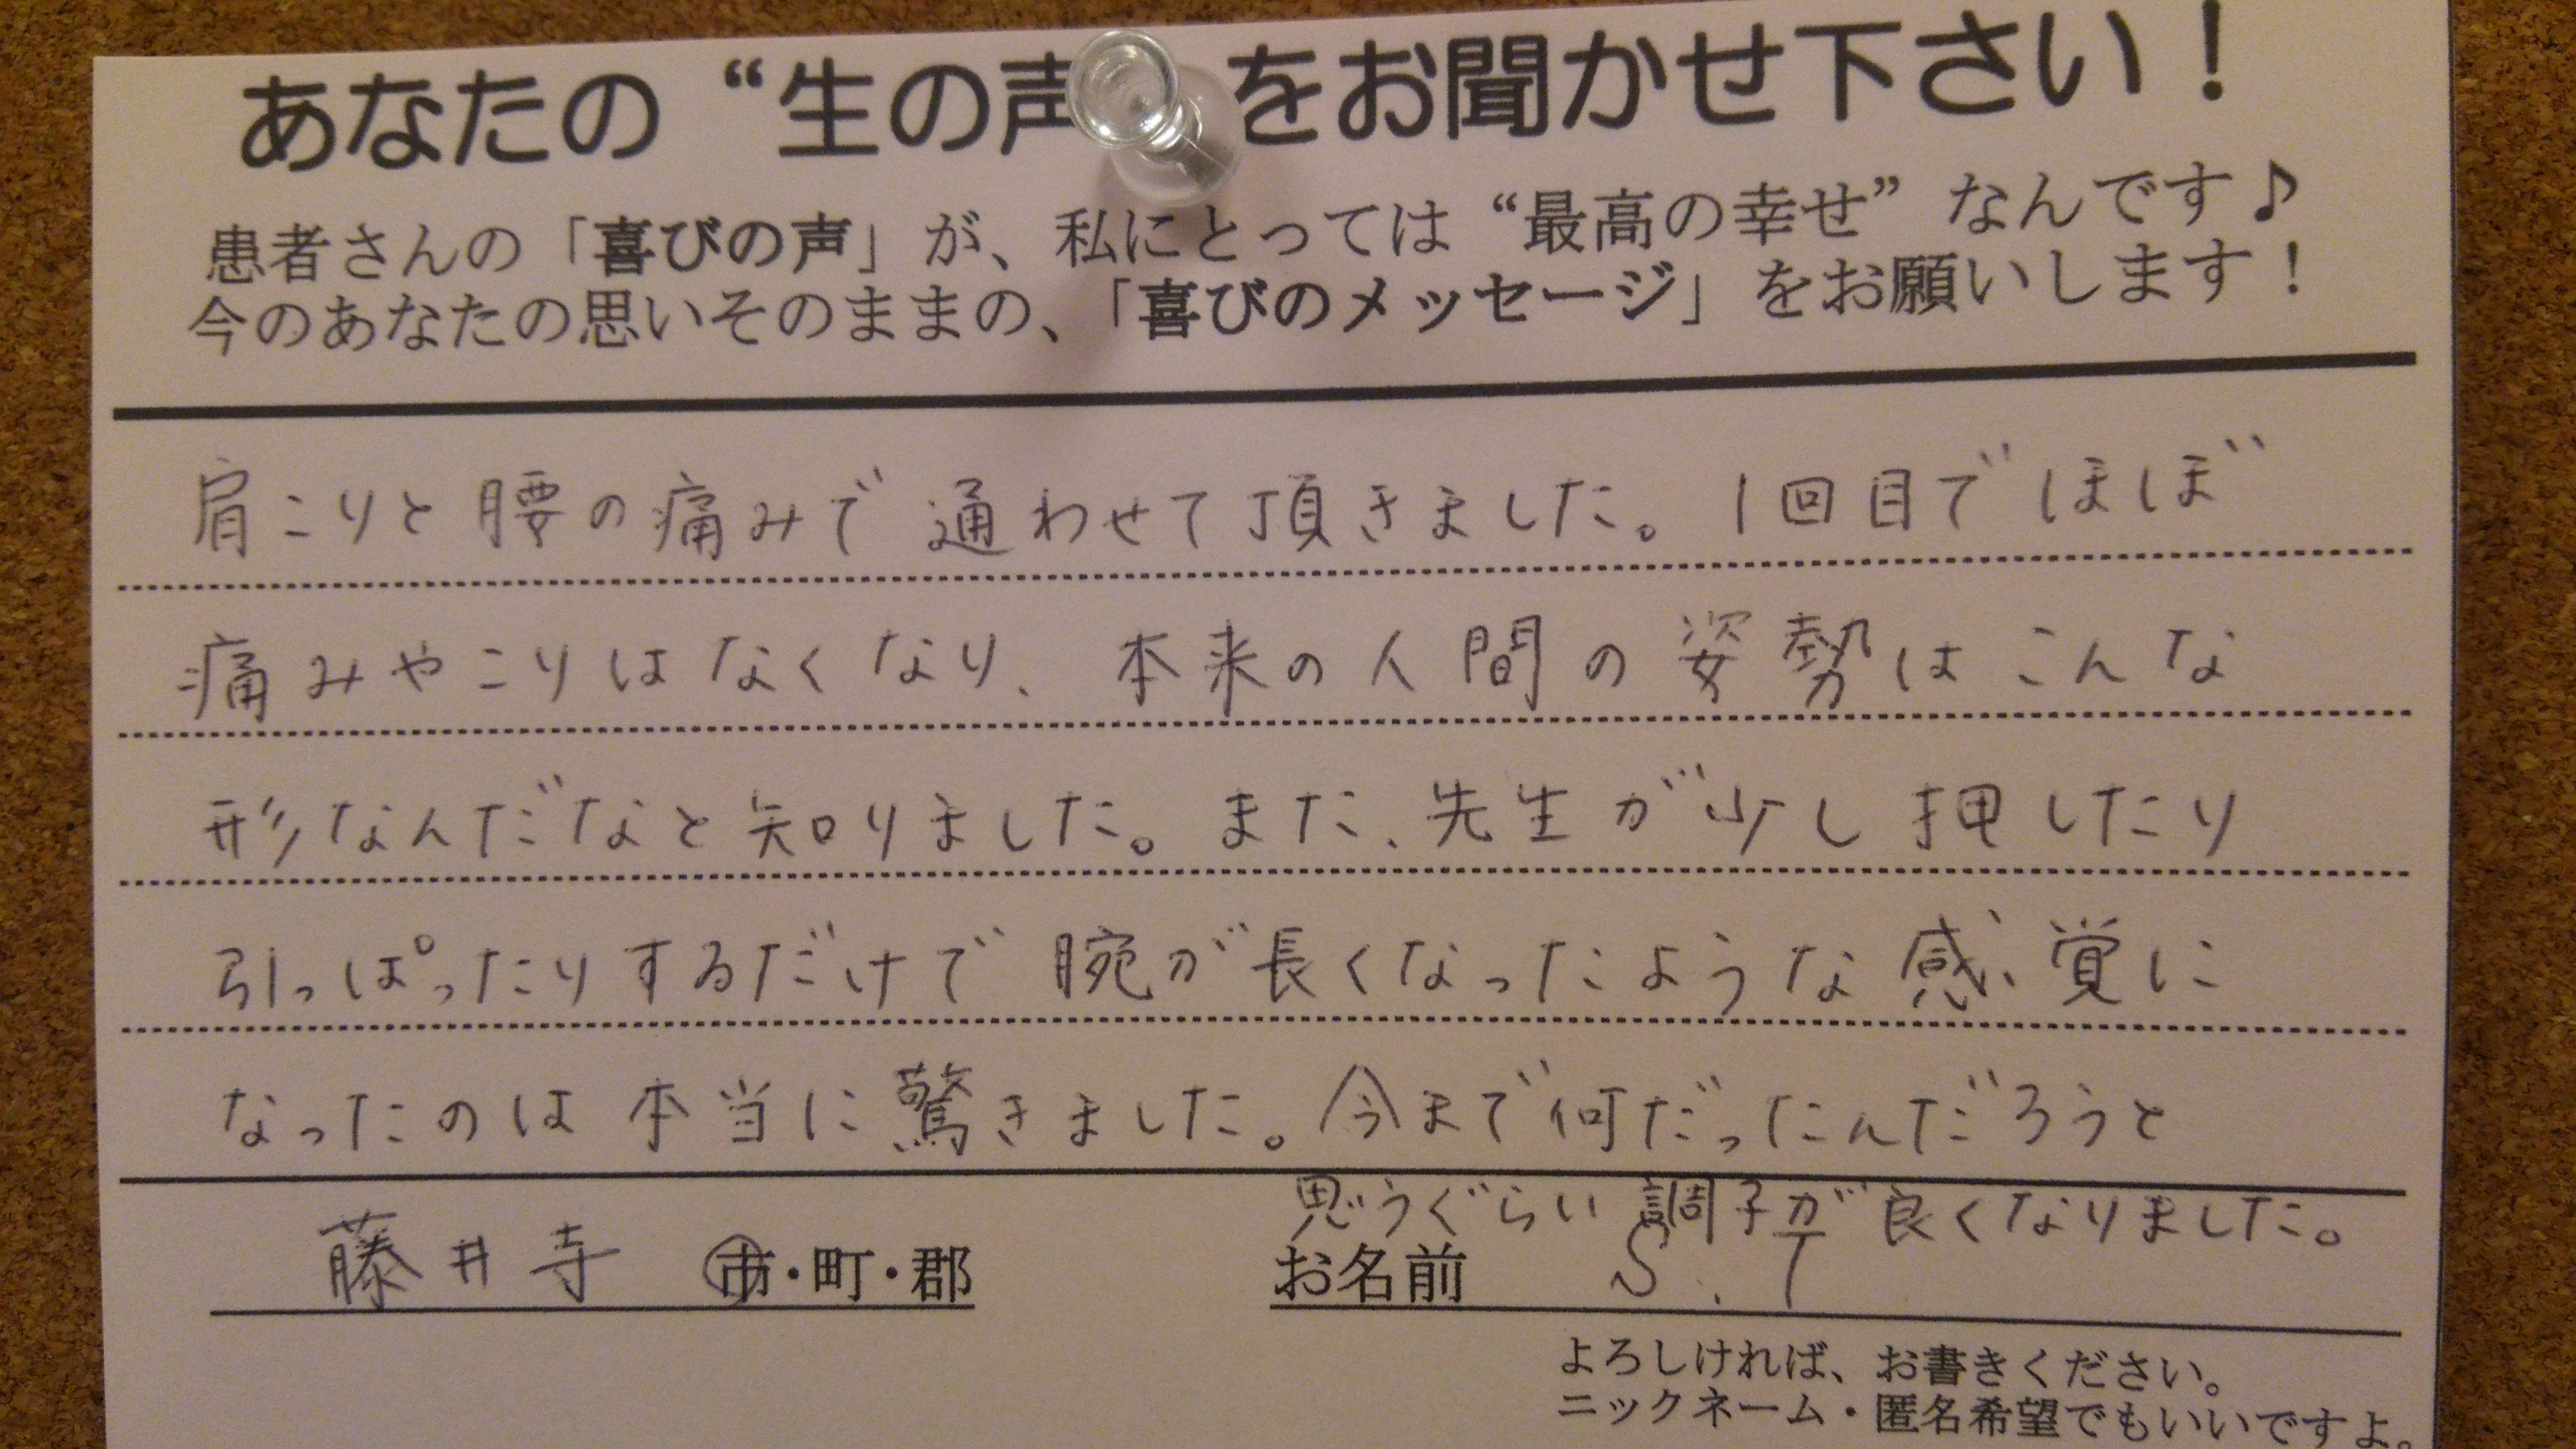 あなたの“生の声をお聞かせ下さい！
患者さんの「喜びの声」が、私にとっては“最高の幸せ”なんです♪
今のあなたの思いそのままの、「喜びのメッセージ」をお願いします！
肩こりと腰の痛みで通わせて頂きました。1回目でほぼ
痛みやこりはなくなり、本来の人間の姿勢はこんな
形なんだなと知りました。また、先生が少し押したり
引っぱったりするだけで腕が長くなったような感覚に
なったのは本当に驚きました。今まで何だったんだろうと
思うぐらい調子が良くなりました。
藤井寺 市・町・郡
お名前 S.T
よろしければ、お書きください。
ニックネーム・匿名希望でもいいですよ。